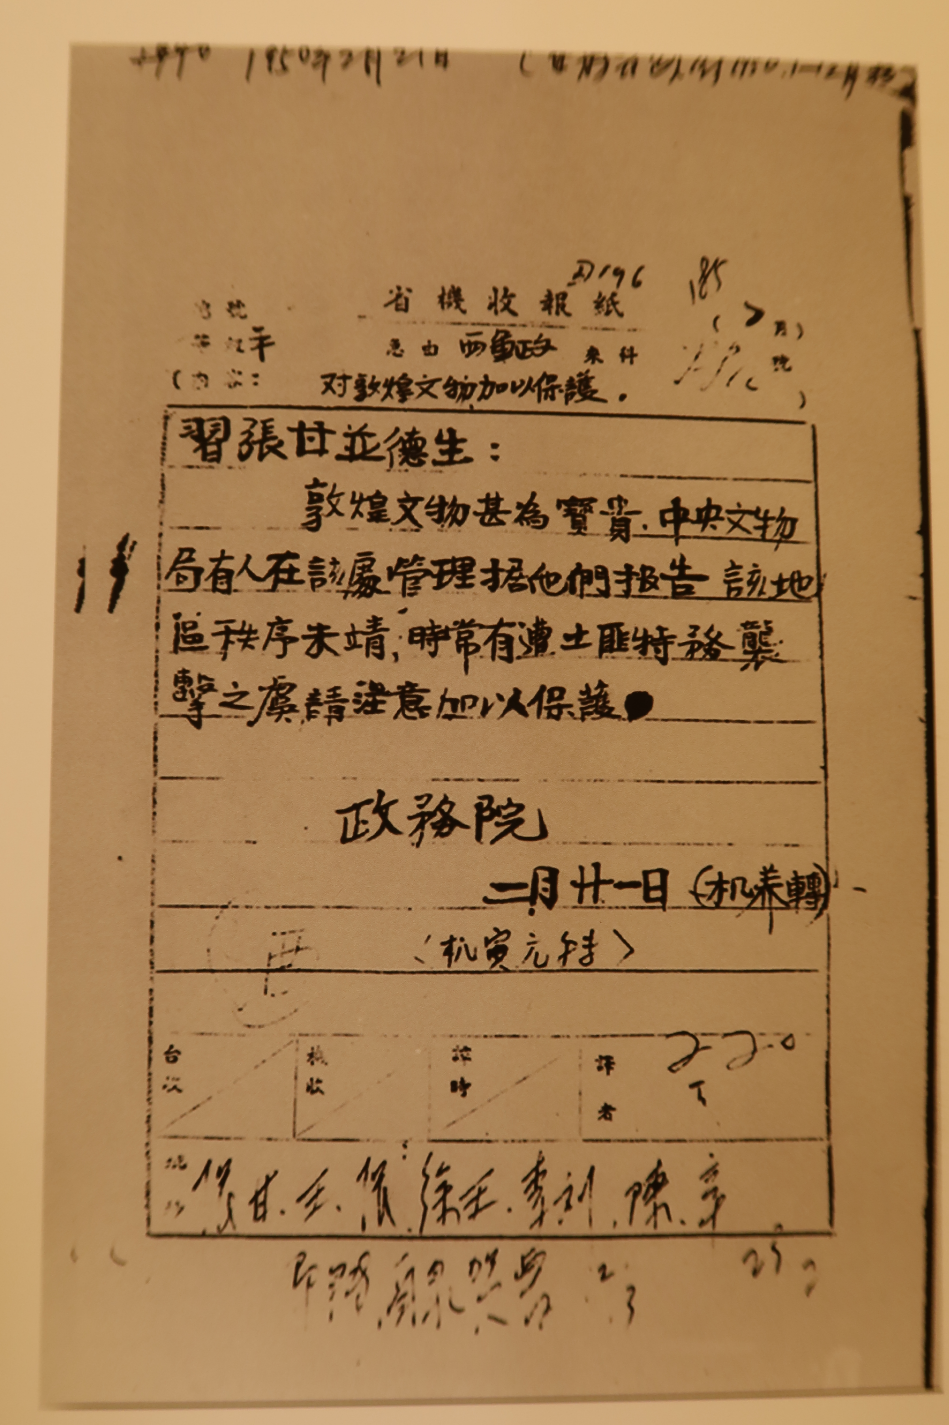 1950年2月21日
D196 185
省機收報紙
(2月)
等级平 悤由 西軍政 來件 號
(内容: 对敦煌文物加以保護. )
習張甘並德生:
敦煌文物甚為寶貴.中央文物
局有人在該處管理据他們报告 該地
區秩序未靖,時常有遭土匪特務襲
擊之虞請注意加以保護
政務院
二月廿一日 (机养轉)
(机寅元特)
台收 機收 譯時 譯者 220
張甘.王.張.徐王.李刘.陳.辛